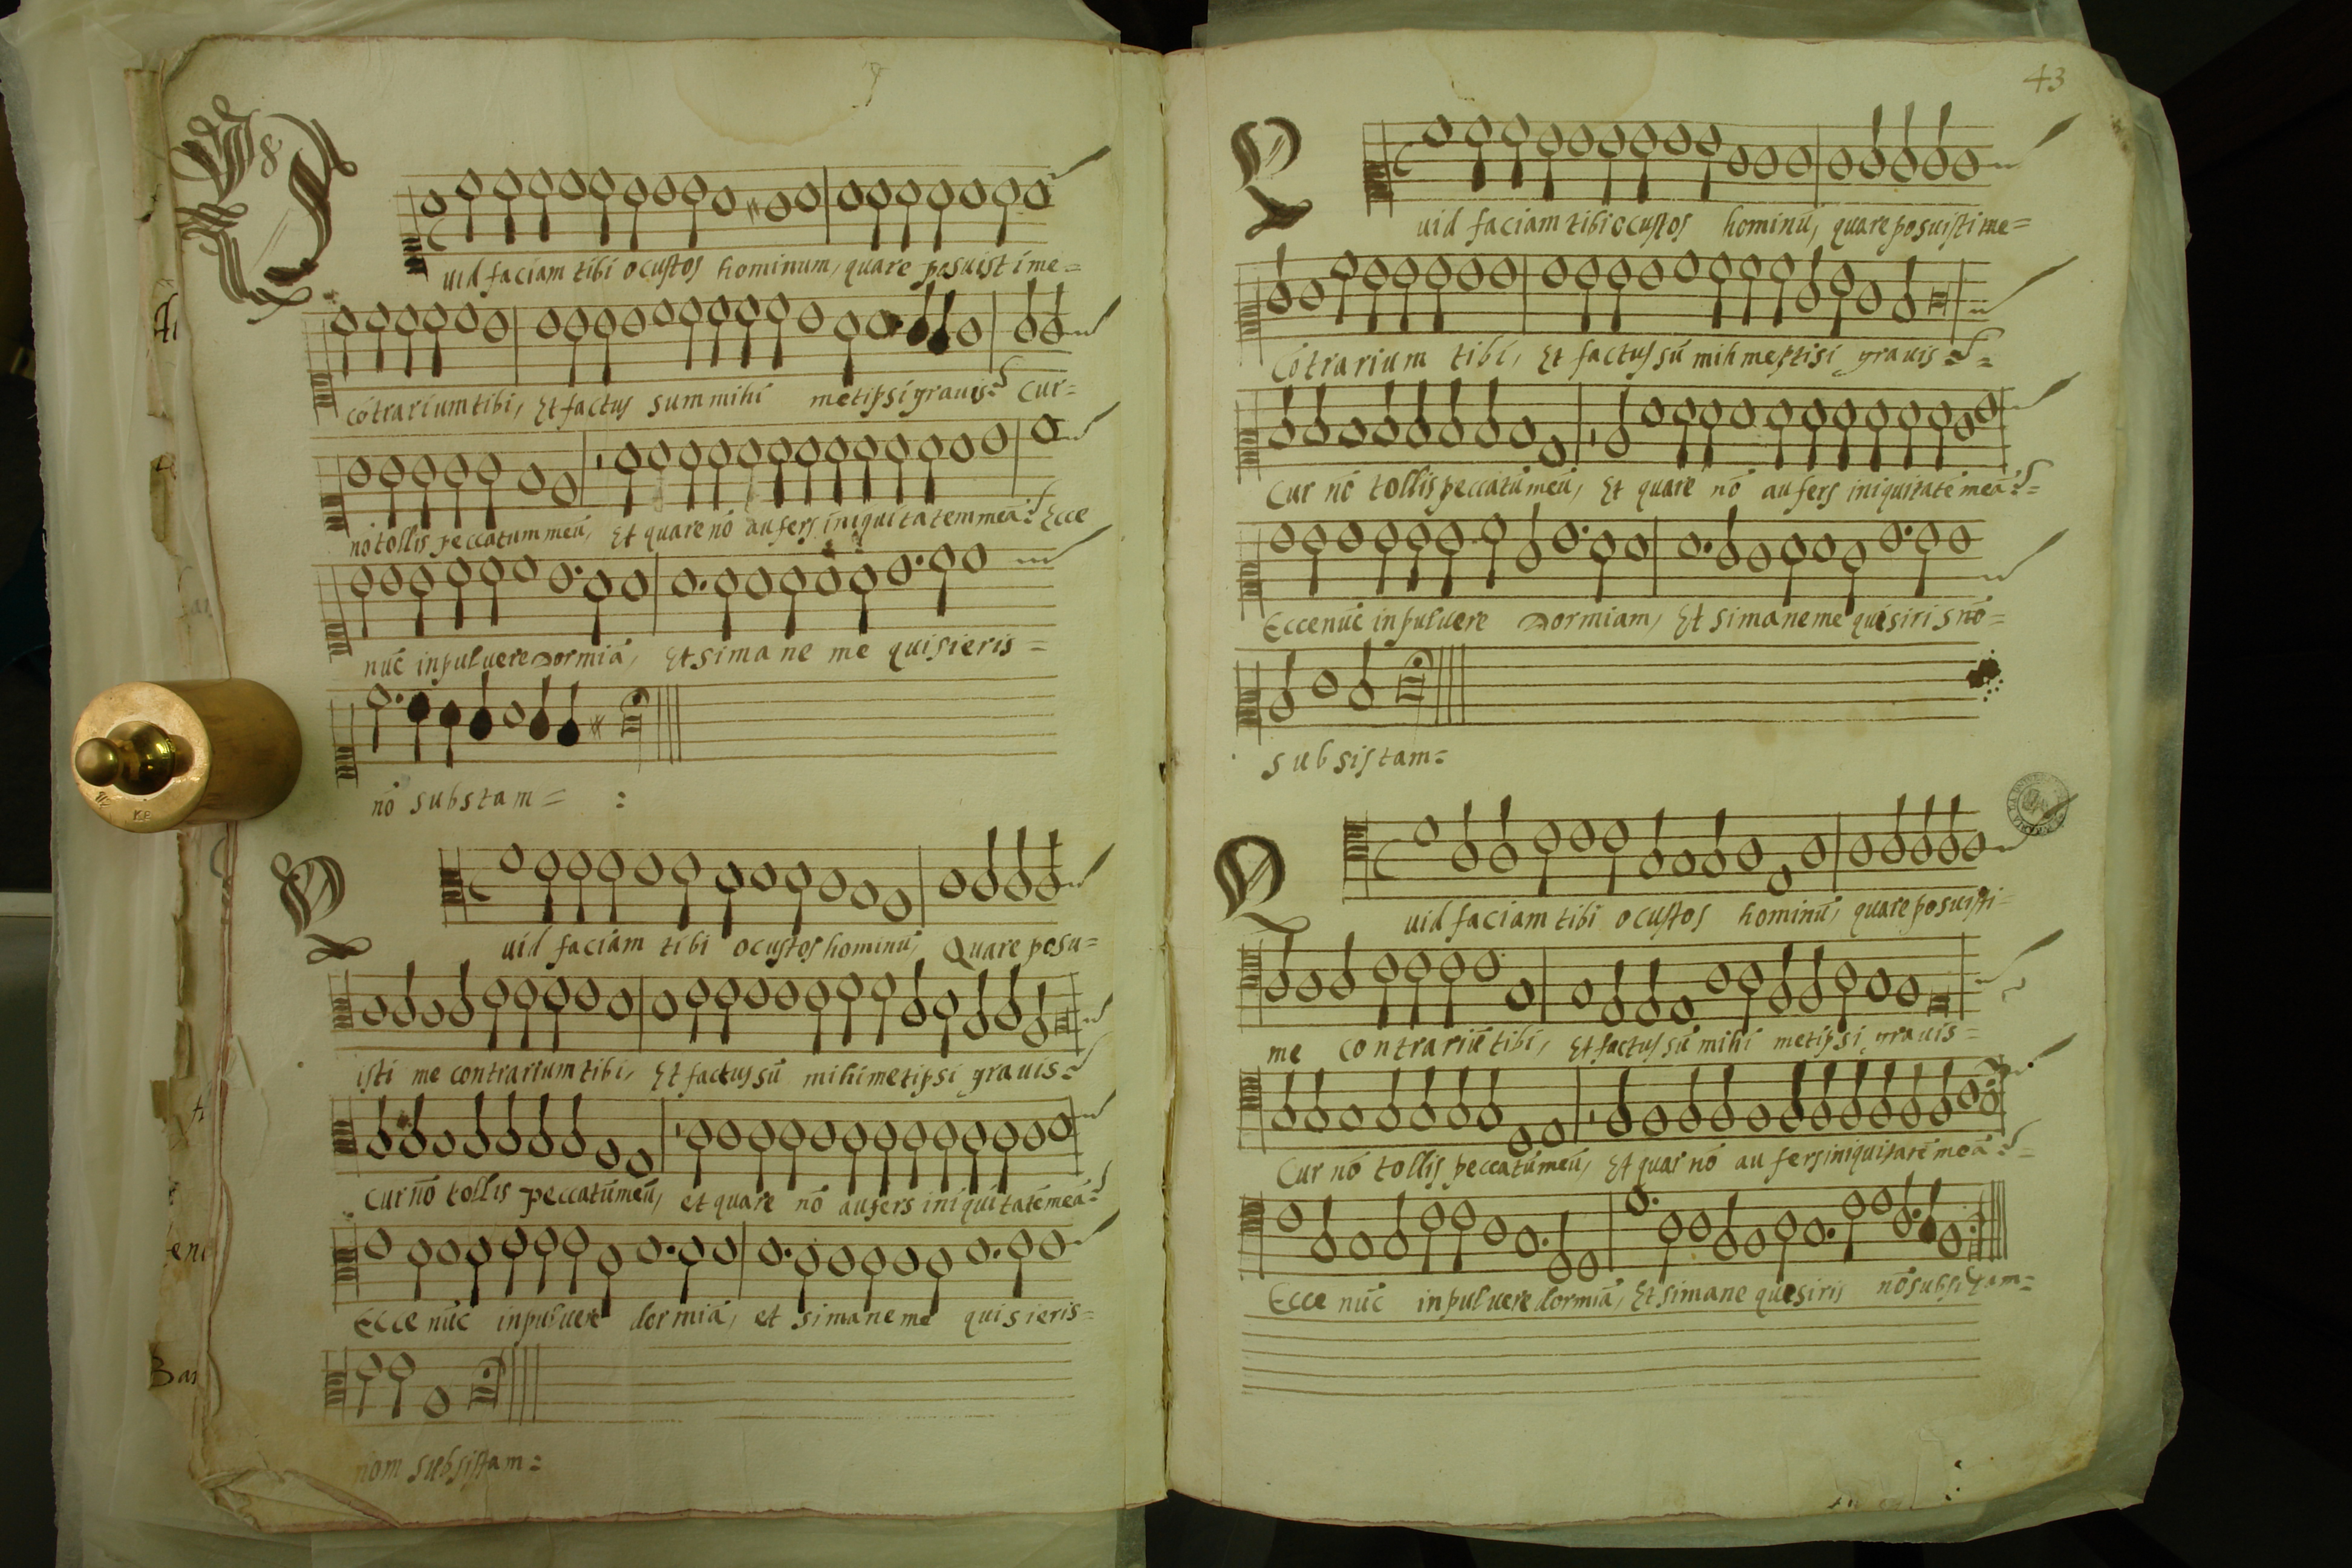 Quid faciam tibi o custos hominum, quare posuist i me=
cōtrarium tibi, Et factus sum mihi metipsi grauis: Cur=
nō tollis peccatum meū, Et quare nō aufers iniquitatem meā: Ecce
nūc in puluere dormiā, Et si mane me quisieris=
nō substam= :
Quid faciam tibi o custos hominū, Quare posu=
isti me contrarium tibi, Et factus sū mihi metipsi grauis:
Cur nō tollis peccatū meū, et quare nō aufers iniquitatē meā:
Ecce nūc in puluere dormiā, et si mane me quisieris=
nom subsistam:
43
Quid faciam tibi o custos hominū, quare posuisti me=
Cōtrarium tibi, Et factus sū mih meptisi grauis:
Cur nō tollis peccatū meū, Et quare nō aufers iniquitatē meā:
Ecce nūc in puluere dormiam, Et si mane me quisiris nō=
subsistam:
Quid faciam tibi o custos hominū, quare posuisti=
me contrariū tibi, Et factus sū mihi metipsi grauis=
Cur nō tollis peccatū meū, Et quar nō aufers iniquitatē meā:
Ecce nūc in puluere dormiā, Et si mane quesiris nō subsistam=